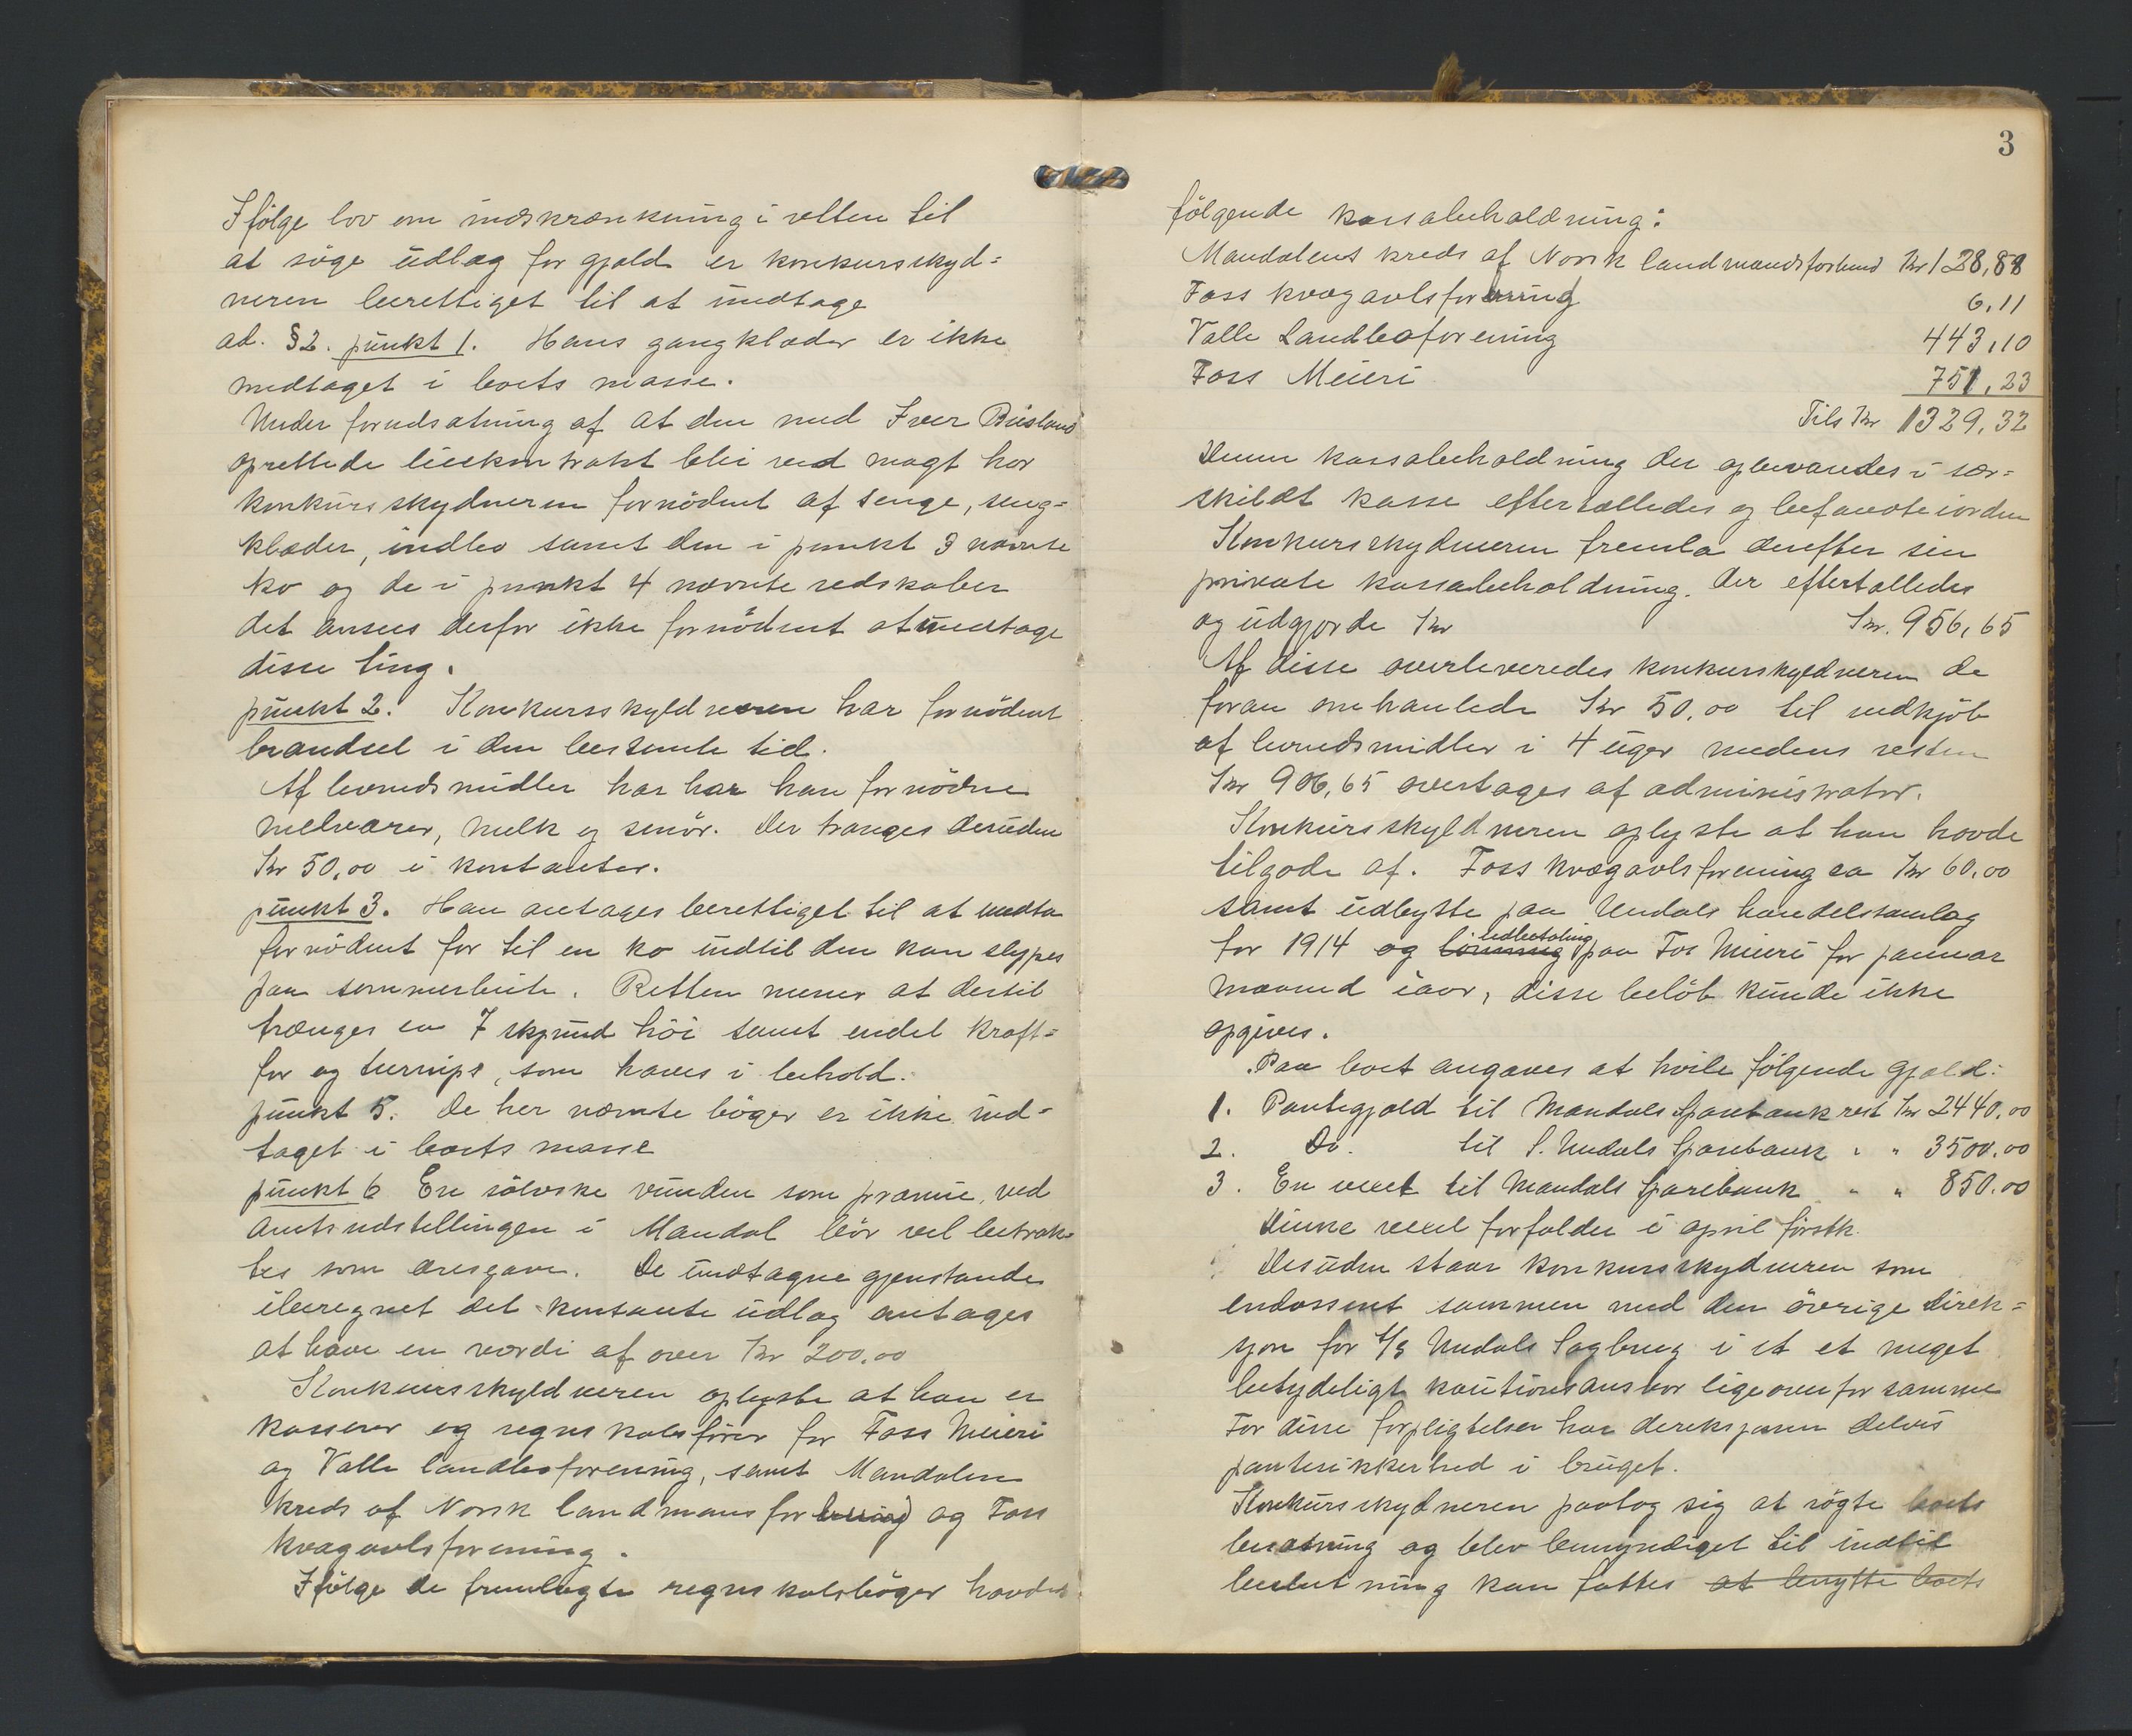 Ifølge lov om indskrænkning i retten til
at søge üdlæg for gjæld er konkursskyd=
neren berettiget til at ündtage
ad. §2. pünkt 1. Hans gangklæder er ikke
medtaget i boets masse.
Under forudsætning af at den med Iver Büsland
oprettede livkontrakt blir ved magt har
konkürsskydneren fornødent af senge, seng=
klæder, indbo samt den i punkt 3 nævnte
ko og de i punkt 4 nævnte redskaber
det ansees derfor ikke fornødent at ündtage
disse ting.
pünkt 2. Konkursskyldneren har fornødent
brændsel i den bestemte tid.
Af levnedsmidler har har han fornødne
melvarer, melk og smør. Der trænges desüden
Kr 50,00 i kontanter.
pünkt 3. Han antages berettiget til at undta
fornødent for til en ko indtil den kan slippes
paa sommerbeite. Retten mener at dertil
trænges ca 7 skpünd høi samt endel kraft=
for og turnips, som haves i behold.
pünkt 5. De her nævnte bøger er ikke ind=
taget i boets masse
pünkt 6 En sølvske vünden som præmie ved
Amtsudstillingen i Mandal bør vel betrak=
tes som æresgave. De ündtagne gjenstande
iberegnet det kontante üdlæg antages
at have en værdi af over Kr 200,00
Konkursskyldneren oplyste at han er
kasserer og regnskabsfører for Foss Meieri
og Valle landboforening, samt Mandalens
kreds af Norsk landmansfor og Foss
kvægavlsforening.
Ifølge de fremlagte regnskabsbøger havdes
3
følgende kassabeholdning:
Mandalens kreds af Norsk landmandsforbund Kr 128,88
Foss kvægavlsforening 6,11
Valle Landboforening 443,10
Foss Meieri 751,23
Tils Kr 1329,32
Denne kassabeholdning der opbevaredes i sær=
skildt kasse eftertælledes og befandtes iorden
Konkursskydneren fremla derefter sin
private kassabeholdning. der eftertælledes
og üdgjorde Kr Kr. 956,65
Af disse overleveredes konkursskyldneren de
foran omhanlede Kr 50,00 til indkjøb
af levnedsmidler i 4 üger medens resten
Kr 906,65 overtages af administrator.
Konkürsskyldneren oplyste at han havde
tilgode af. Foss kvægavlsforening ca Kr 60,00
samt üdbytte paa Undals handelssamlag
for 1914 og udbetaling paa Fos Meieri for januar
maaned iaar, disse beløb künde ikke
opgives.
Paa boet angaves at hvile følgende Gjæld:
1. Pantegjæld til Mandals Sparebank rest Kr 2440,00
2. Do. til S. Undals Sparebank " " 3500,00
3. En vexel til Mandals Sparebank " " 850,00
Denne vexel forfalder i april førstk.
Desüden staar konkursskydneren som
endossent sammen med den øvrige direk=
sjon for A/S Undals Sagbrug i et et meget
betydeligt kautionsansvar ligeoverfor samme
For disse forpligtelser har direksjonen delvis
pantesikkerhed i brüget.
Konkürsskydneren paatog sig at røgte boets
besætning og blev bemyndiget til indtil
beslutning kan fattes at benytte boets